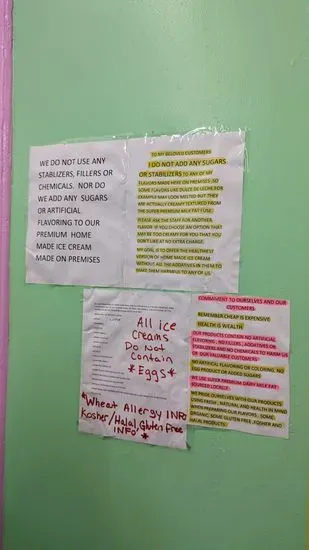 WE DO NOT USE ANY
STABLIZERS, FILLERS OR
CHEMICALS. NOR DO
WE ADD ANY SUGARS
OR ARTIFICAL
FLAVORING TO OUR
PREMIUM HOME
MADE ICE CREAM
MADE ON PREMISES
TO MY BELOVED CUSTOMERS
I DO NOT ADD ANY SUGARS
OR STABILIZERS TO ANY OF MY
FLAVORS MADE HERE ON PREMISES .SO
SOME FLAVORS LIKE DULCE DE LECHE FOR
EXAMPLE MAY LOOK MELTED BUT THEY
ARE ACTUALLY CREAMY TEXTURED FROM
THE SUPER PREMIUM MILK FAT I USE.
PLEASE ASK THE STAFF FOR ANOTHER
FLAVOR IF YOU CHOOSE AN OPTION THAT
MAY BE TOO CREAMY FOR YOU THAT YOU
DON'T LIKE AT NO EXTRA CHARGE.
MY GOAL IS TO OFFER THE HEALTHIEST
VERSION OF HOME MADE ICE CREAM
WITHOUT ALL THE ADDITIVES IN THEM TO
MAKE THEM HARMFUL TO ANY OF US.
All ice
Creams
Do Not
Contain
*Eggs*
*Wheat Allergy INFO
Kosher/Halal, Gluten Free
INFO*
COMMITMENT TO OURSELVES AND OUR
CUSTOMERS
REMEMBER CHEAP IS EXPENSIVE
HEALTH IS WEALTH
OUR PRODUCTS CONTAIN NO ARTIFICIAL
FLAVORING , NO FILLERS , ADDITIVES OR
STABILIZERS AND NO CHEMICALS TO HARM US
OR OUR VALUABLE CUSTOMERS
NO ARTIFICAL FLAVORING OR COLORING, NO
EGG PRODUCT OR ADDED SUGARS
WE USE SUPER PREMIUM DAIRY MILK FAT
SOURCED LOCALLY
WE PRIDE OURSELVES WITH OUR PRODUCTS
USING FRESH , NATURAL AND HEALTH IN MIND
WHEN PREPARING OUR FLAVORS . SOME
ORGANIC, SOME GLUTEN FREE , KOSHER AND
HALAL PRODUCTS